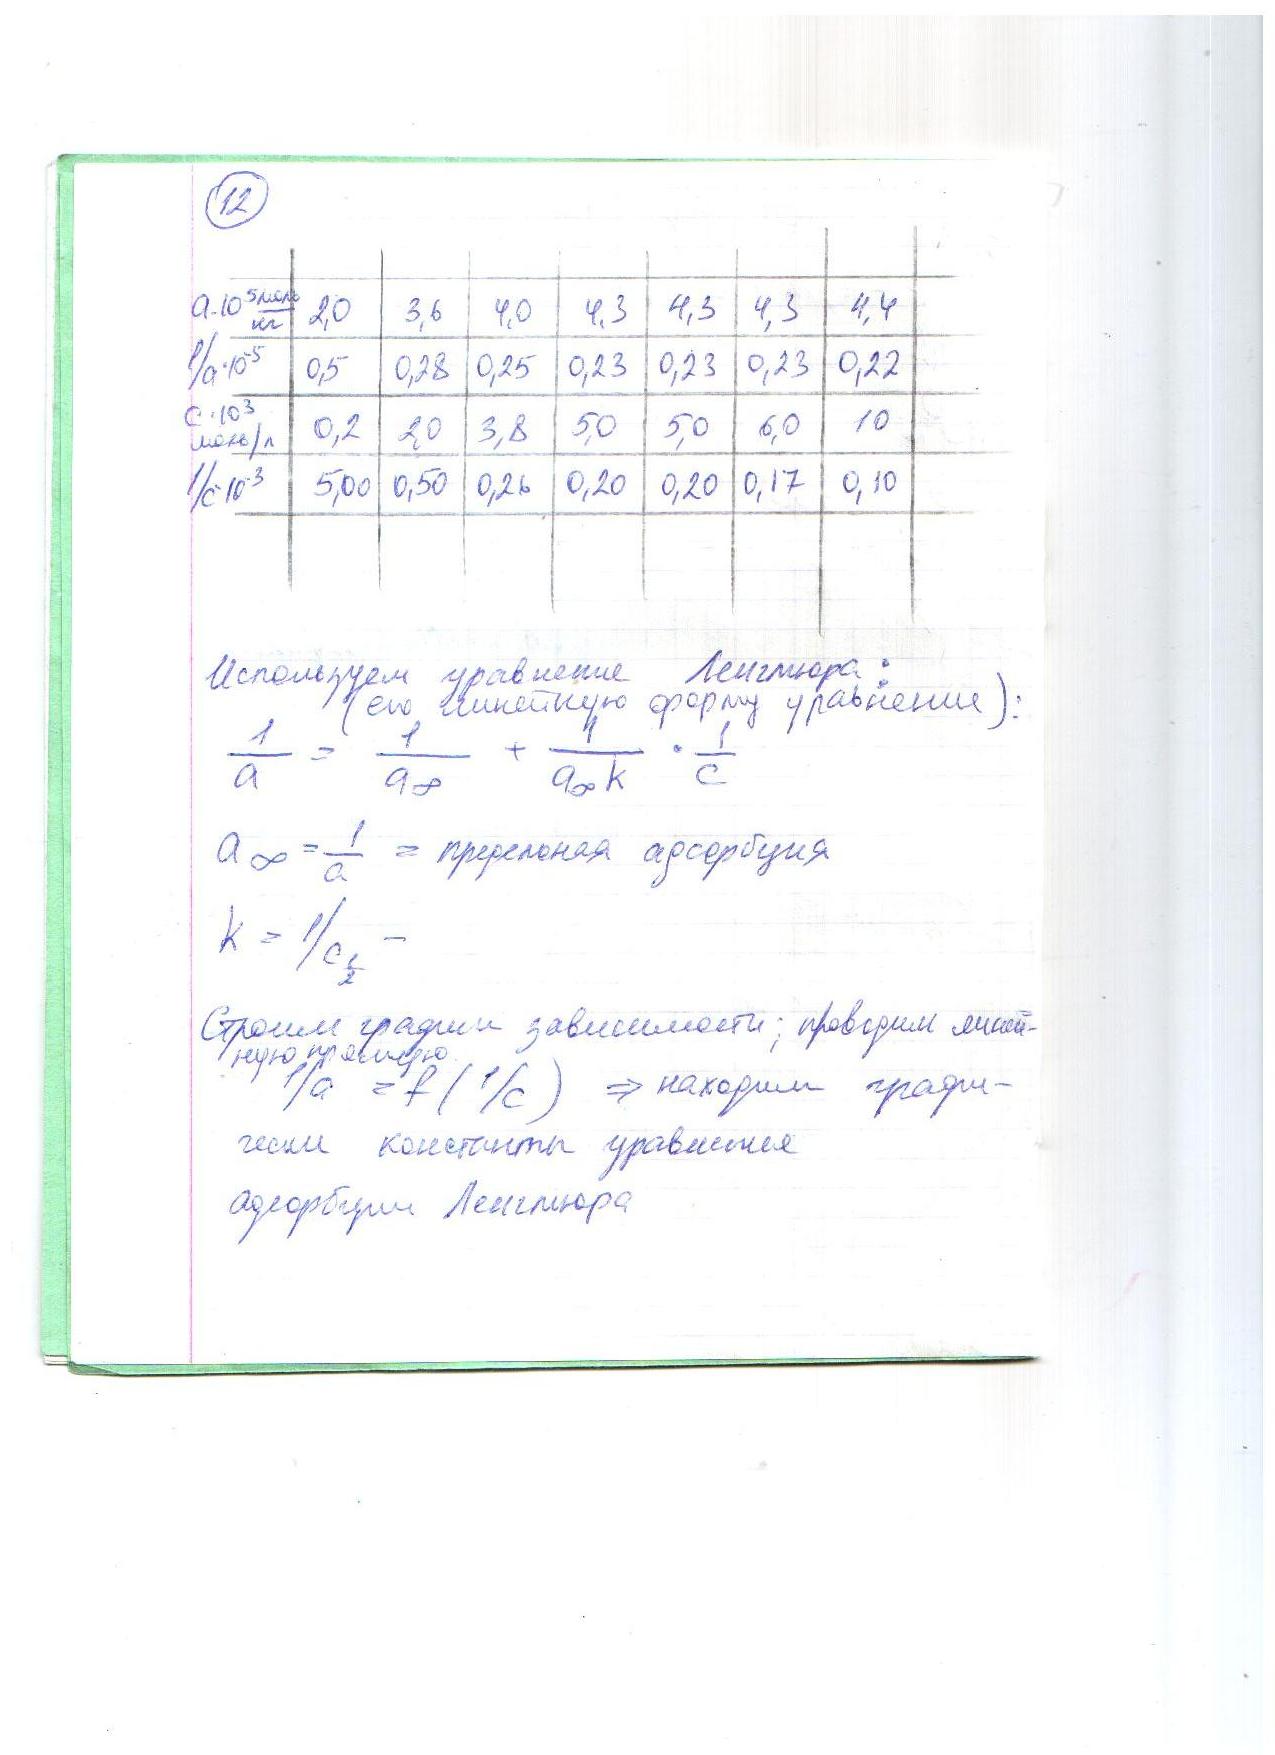 12
a·10⁵ моль/кг 2,0 3,6 4,0 4,3 4,3 4,3 4,4
1/a·10⁻⁵ 0,5 0,28 0,25 0,23 0,23 0,23 0,22
c·10³ моль/л 0,2 2,0 3,8 5,0 5,0 6,0 10
1/c·10⁻³ 5,00 0,50 0,26 0,20 0,20 0,17 0,10
Используем уравнение Ленгмюра:
(его линейную форму уравнение):
1/a = 1/a∞ + 1/a∞k · 1/c
a∞ = 1/a = предельная адсорбция
k = 1/c½ –
Строим график зависимости; проводим линей-
ную прямую
1/a = f(1/c) ⇒ находим графи-
чески константы уравнения
адсорбции Ленгмюра